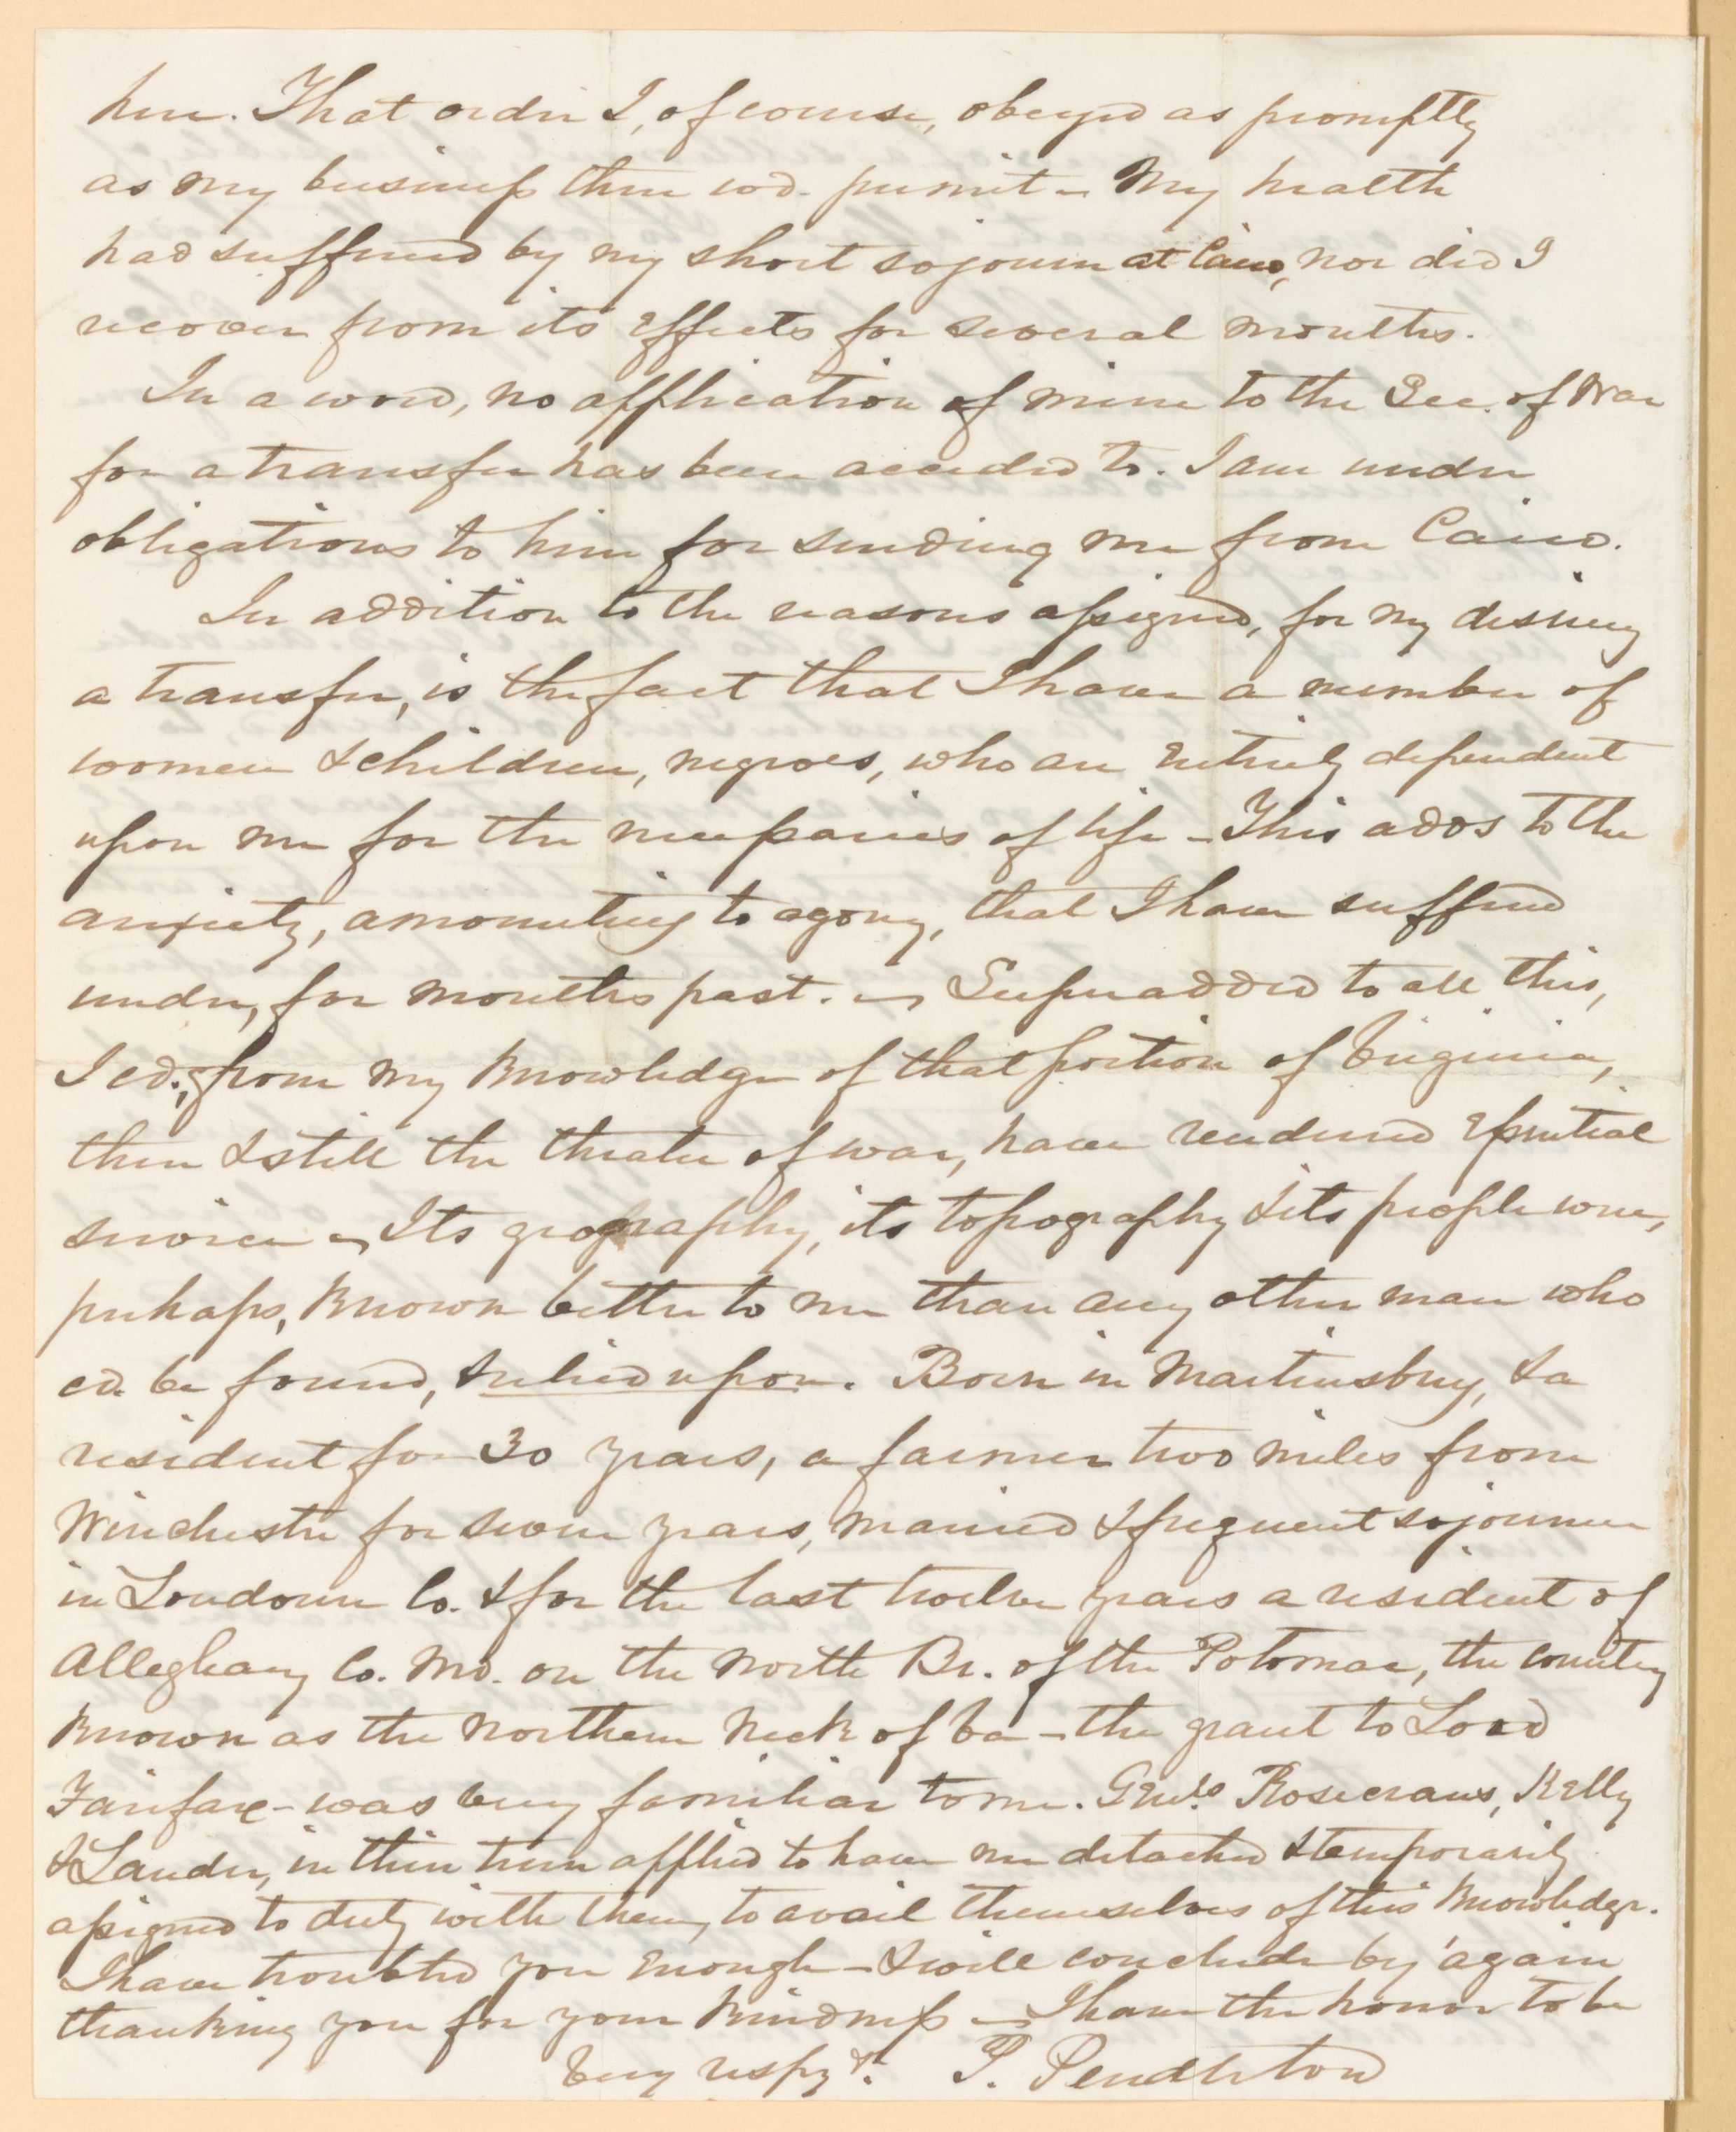 here. That order I, of course, obeyed as promptly
as my business there wd. permit – My health
had suffered by my short sojourn at Cairo, nor did I
recover from its effects for several months.
In a word, no application of mine to the Sec. of War
for a transfer has been acceded to. I am under
obligations to him for sending me from Cairo.
In addition to the reasons assigned, for my desiring
a transfer, is the fact that I have a number of
women & children, negroes, who are entirely dependent
upon me for the necessaries of life – This adds to the
anxiety, amounting to agony, that I have suffered
under, for months past. – Superadded to all this,
I cd., from my knowledge of that portion of Virginia,
then & still the theatre of war, have rendered essential
service – Its geography, its topography & its people were,
perhaps, known better to me than any other man who
cd. be found, & relied upon. Born in Martinsburg, & a
resident for 30 years, a farmer two miles from
Winchester for seven years, married & frequent sojourner
in Loudoun Co. & for the last twelve years a resident of
Alleghany Co. Md. on the North Br. of the Potomac, the country
known as the Northern Neck of Va – the grant to Lord
Fairfax – was very familiar to me. Genls. Rosecrans, Kelly
& Lander, in their turn applied to have me detached & temporarily
assigned to duty with them, to avail themselves of this knowledge.
I have troubled you enough – & will conclude by again
thanking you for your kindness – I have the honor to be
Very respy. &. P. Pendleton